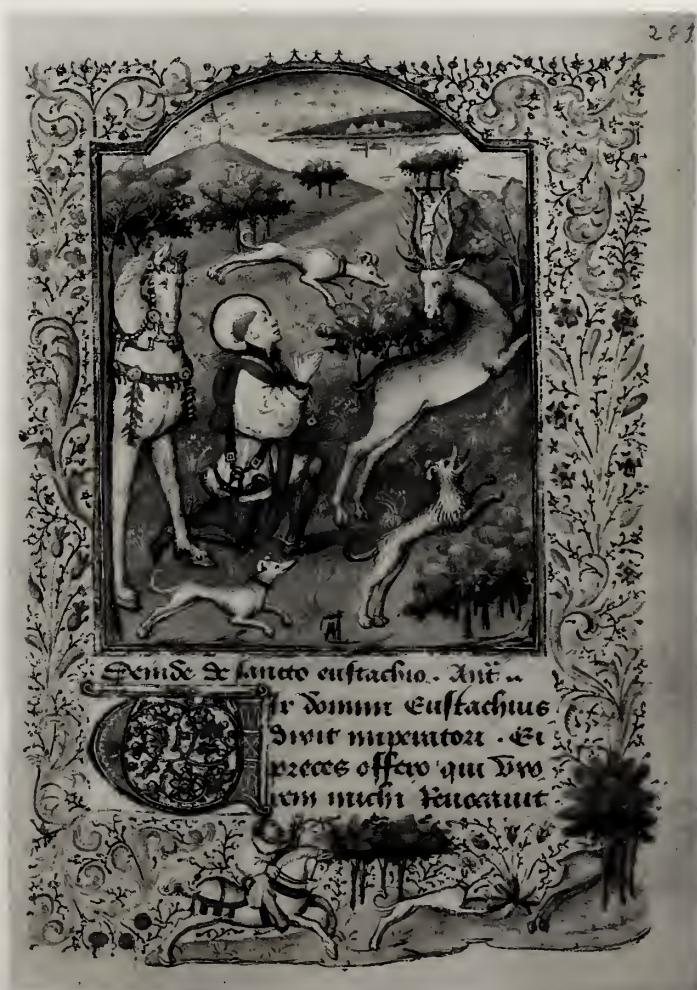 283
Deinde de sancto eustachio. Añt.
Ir domini Eustachius
dixit imperatori . Ei
preces offero qui
rem michi Reuocauit